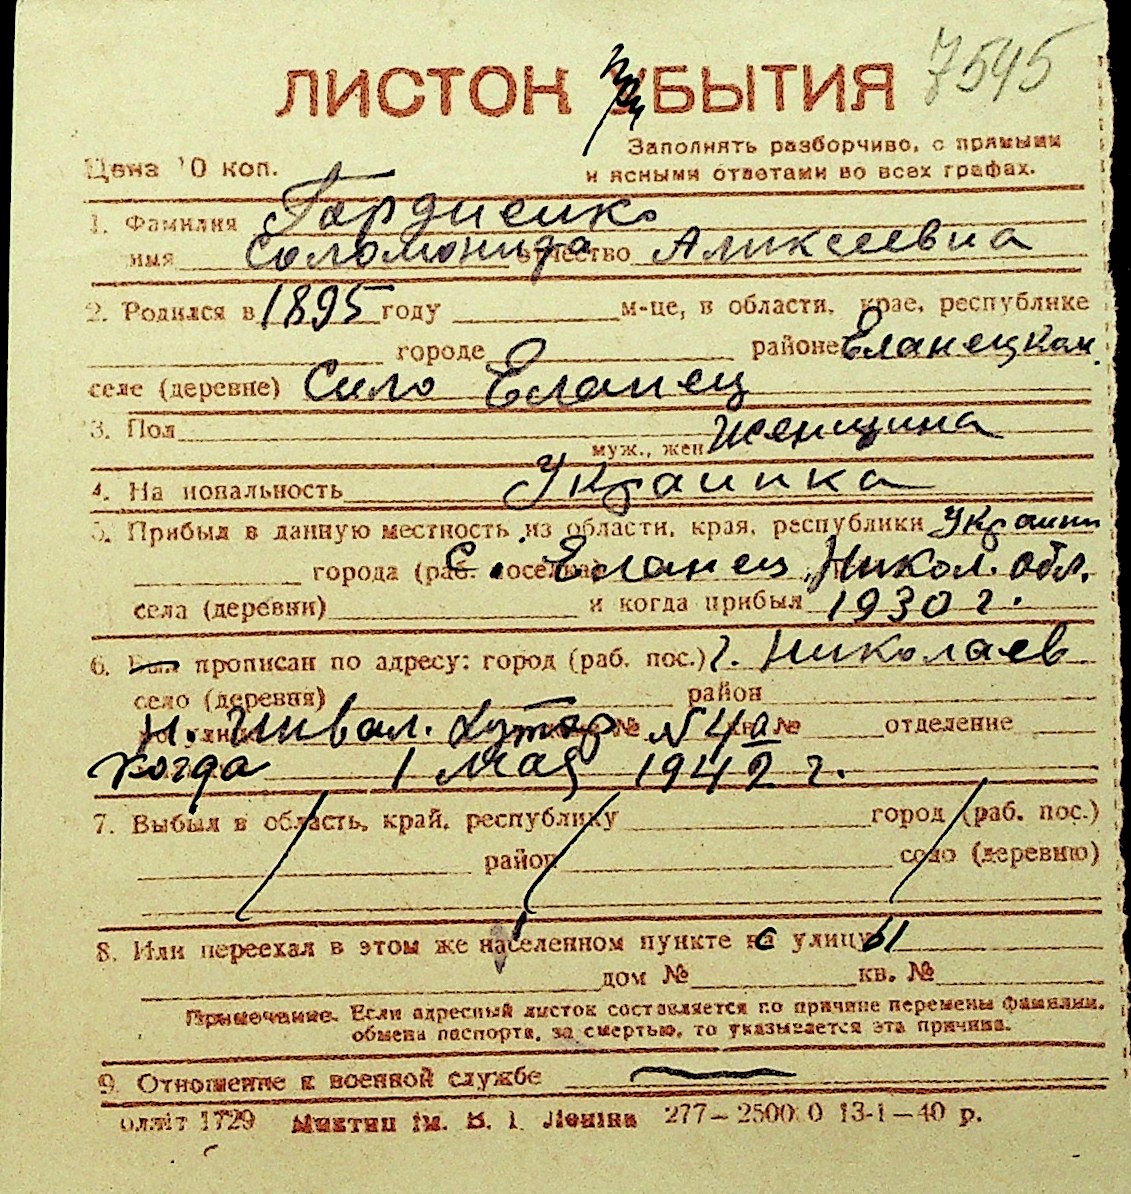 7545
ЛИСТОК прыБЫТИЯ
Цена 10 коп.
Заполнять разборчиво, с прямыми
и ясными ответами во всех графах.
1. Фамилия Гордиенко
имя Соломонида отчество Аликсеевна
2. Родился в 1895 году м-це, в области, крае, республике
городе районе Еланецком
селе (деревне) Сило Еланец
3. Пол муж., жен Женщина
4. Национальность Украинка
5. Прибыл в данную местность из области, края, республики Украины
города (раб. поселка) с. Еланец, Никол. обл.
села (деревни) и когда прибыл 1930 г.
6. Был прописан по адресу: город (раб. пос.) г. Николаев
село (деревня) район
по улице Н. Инвал. Хутор № N 4а кв. № отделение
когда 1 мая 1942 г.
7. Выбыл в область, край, республику город (раб. пос.)
район село (деревню)
8. Или переехал в этом же населенном пункте с улицы
дом № кв. №
Примечание. Если адресный листок составляется по причине перемены фамилии,
обмена паспорта, за смертью, то указывается эта причина.
9. Отношение к военной службе
1729 им. В. І. Леніна 277— 13-1—40 р.